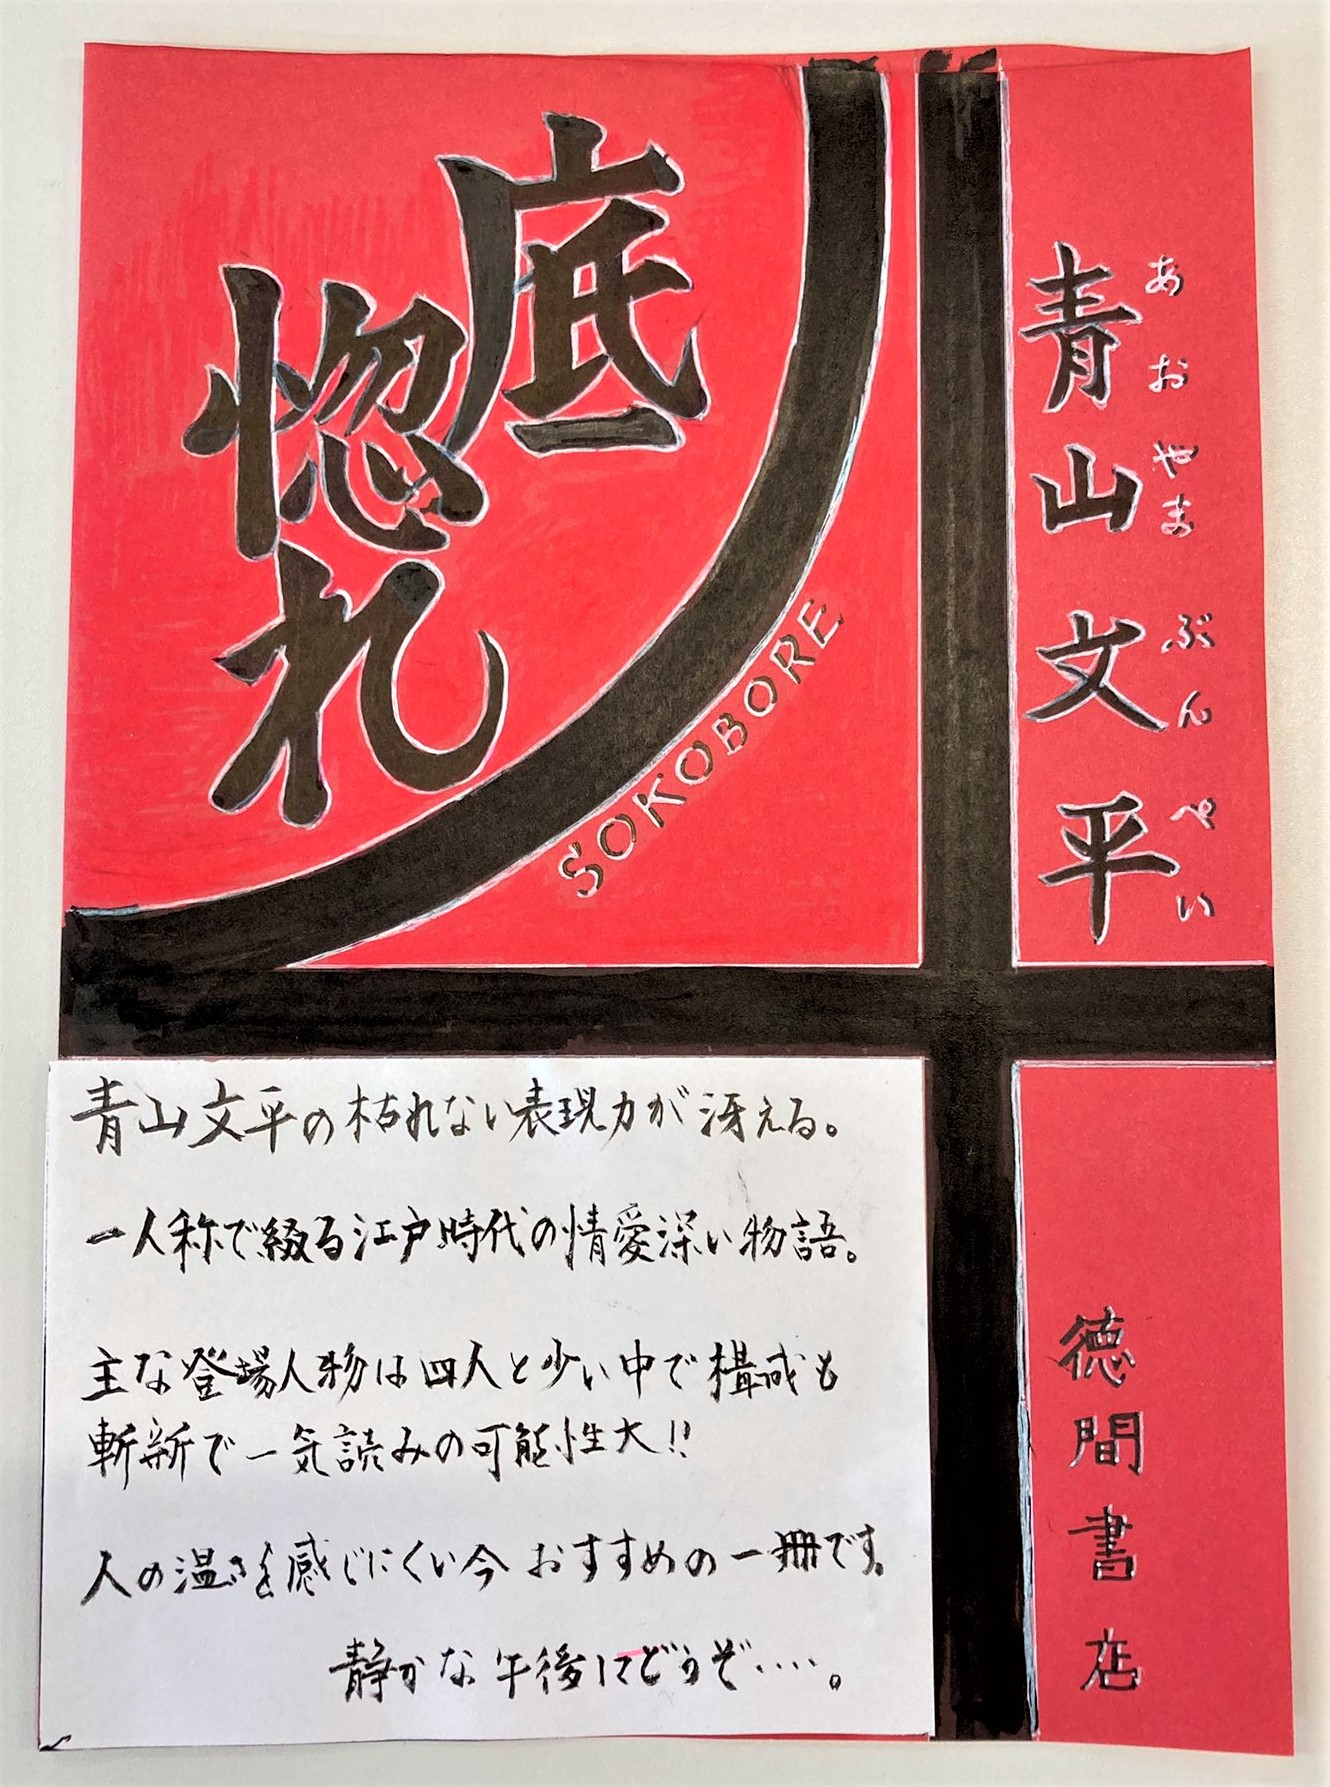 底惚れ
SOKOBORE
青山文平
あおやまぶんぺい
徳間書店
青山文平の枯れない表現力が冴える。
一人称で綴る江戸時代の情愛深い物語。
主な登場人物は四人と少い中で構成も
斬新で一気読みの可能性大!!
人の温さを感じにくい今おすすめの一冊です。
静かな午後にどうぞ‥‥。